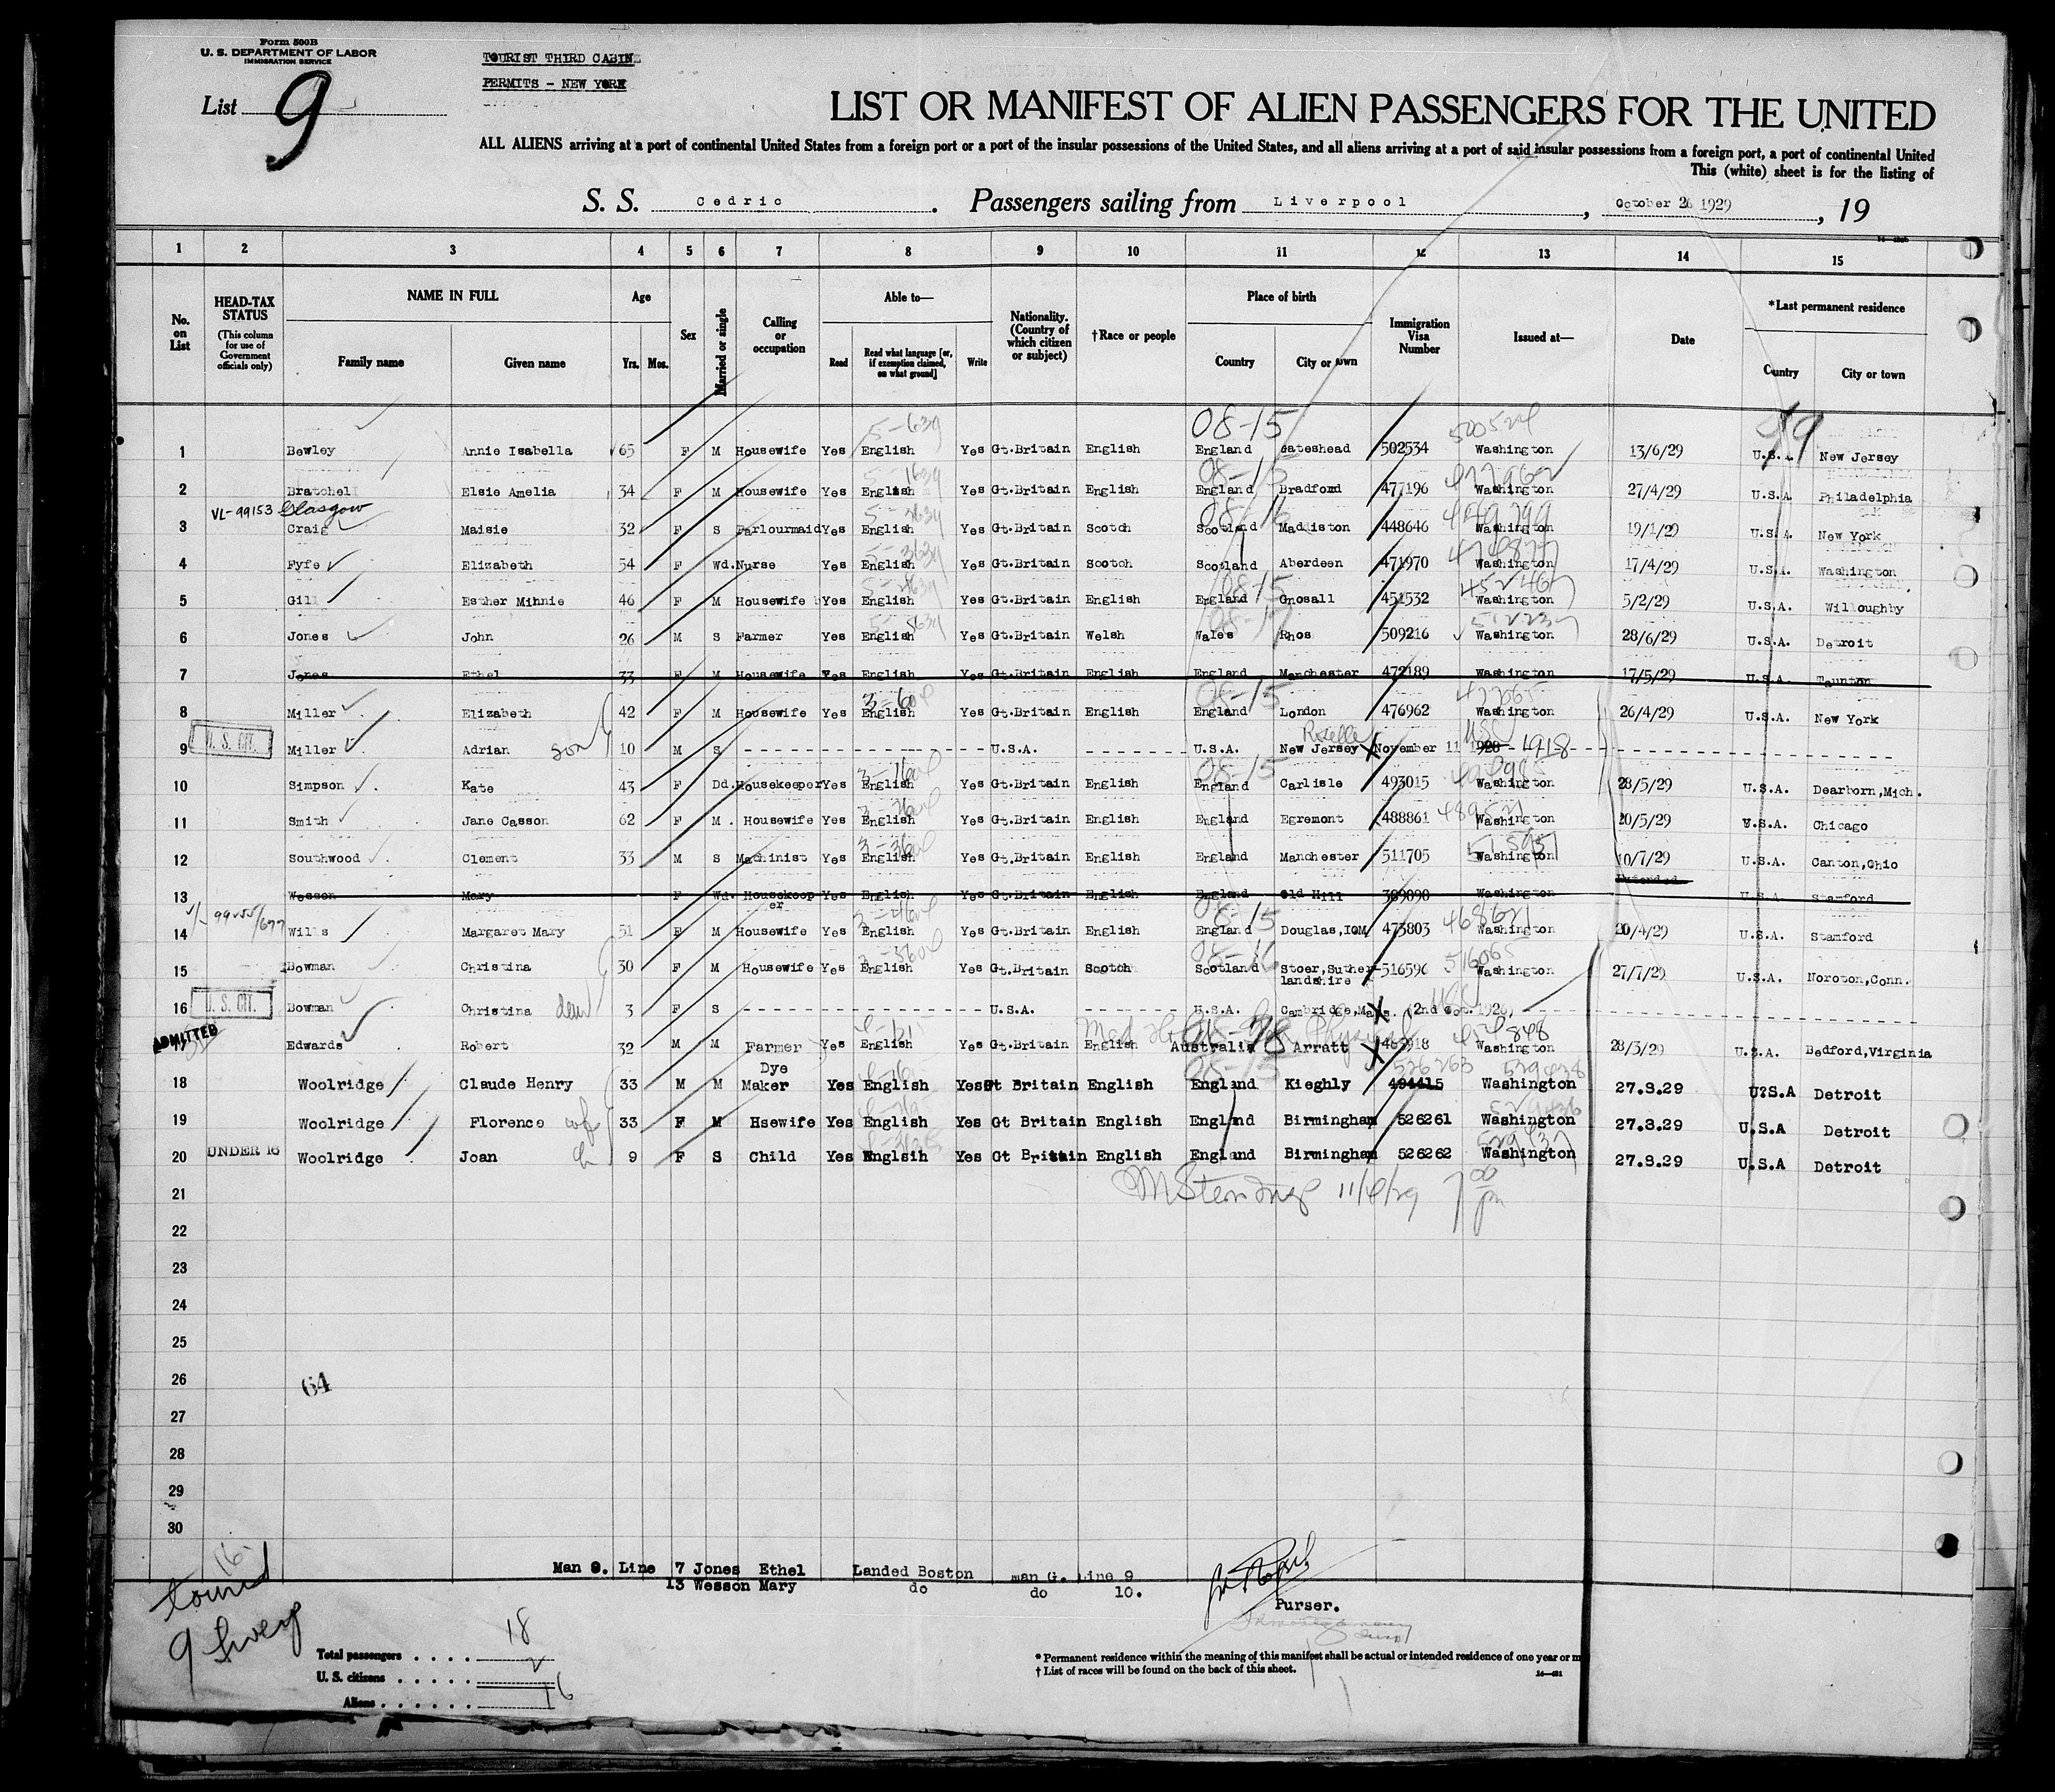 Form 500B
U. S. DEPARTMENT OF LABOR
IMMIGRATION SERVICE
TOURIST THIRD CABIN
PERMITS - NEW YORK
List 9
LIST OR MANIFEST OF ALIEN PASSENGERS FOR THE UNITED
ALL ALIENS arriving at a port of continental United States from a foreign port or a port of the insular possessions of the United States, and all aliens arriving at a port of said insular possessions from a foreign port, a port of continental United
This (white) sheet is for the listing of
S. S. Cedric. Passengers sailing from Liverpool, October 26 1929, 19
1 2 3 4 5 6 7 8 9 10 11 12 13 14 15
No. on List
HEAD-TAX STATUS
(This column for use of Government officials only)
NAME IN FULL
Family name Given name
Age
Yrs. Mos.
Sex
Married or single
Calling or occupation
Able to—
Read Read what language [or, if exemption claimed, on what ground] Write
Nationality. (Country of which citizen or subject)
†Race or people
Place of birth
Country City or town
Immigration Visa Number
Issued at—
Date
*Last permanent residence
Country City or town
08-15
1 Bewley Annie Isabella 65 F M Housewife Yes English Yes Gt.Britain English England Gateshead 502534 Washington 13/6/29 U.S.A. New Jersey
2 Bratchell Elsie Amelia 34 F M Housewife Yes English Yes Gt.Britain English England Bradford 477196 Washington 27/4/29 U.S.A. Philadelphia
VL-99153 Glasgow
3 Craig Maisie 32 F S Parlourmaid Yes English Yes Gt.Britain Scotch Scotland Maddiston 448646 Washington 19/1/29 U.S.A. New York
4 Fyfe Elizabeth 54 F Wd. Nurse Yes English Yes Gt.Britain Scotch Scotland Aberdeen 471970 Washington 17/4/29 U.S.A. Washington
5 Gill Esther Mihnie 46 F M Housewife Yes English Yes Gt.Britain English England Gnosall 451532 Washington 5/2/29 U.S.A. Willoughby
6 Jones John 26 M S Farmer Yes English Yes Gt.Britain Welsh Wales Rhos 509216 Washington 28/6/29 U.S.A. Detroit
7 Jones Ethel 33 F M Housewife Yes English Yes Gt.Britain English England Manchester 472189 Washington 17/5/29 U.S.A. Taunton
8 Miller Elizabeth 42 F M Housewife Yes English Yes Gt.Britain English England London 476962 Washington 26/4/29 U.S.A. New York
U. S. CIT.
9 Miller Adrian son 10 M S U.S.A. U.S.A. Roselle New Jersey November 11 1928 1918
10 Simpson Kate 43 F Dd. Housekeeper Yes English Yes Gt.Britain English England Carlisle 493015 Washington 28/5/29 U.S.A. Dearborn,Mich.
11 Smith Jane Casson 62 F M. Housewife Yes English Yes Gt.Britain English England Egremont 488861 Washington 20/5/29 U.S.A. Chicago
12 Southwood Clement 33 M S Machinist Yes English Yes Gt.Britain English England Manchester 511705 Washington 10/7/29 U.S.A. Canton,Ohio
Extended
13 Wesson Mary F Wd. Housekeeper Yes English Yes Gt.Britain English England Old Hill 389090 Washington U.S.A. Stamford
14 Wills Margaret Mary 51 F M Housewife Yes English Yes Gt.Britain English England Douglas,IOM 473803 Washington 20/4/29 U.S.A. Stamford
15 Bowman Christina 30 F M Housewife Yes English Yes Gt.Britain Scotch Scotland Stoer,Sutherlandshire 516596 Washington 27/7/29 U.S.A. Noroton,Conn.
U. S. CIT.
16 Bowman Christina 3 F S U.S.A. U.S.A. Cambridge,Mass. (2nd Oct. 1926)
ADMITTED
Edwards Robert 32 M M Farmer Yes English Yes Gt.Britain English Australia Arratt 483918 Washington 28/5/29 U.S.A. Bedford,Virginia
18 Woolridge Claude Henry 33 M M Dye Maker Yes English Yes Gt Britain English England Kieghly 494415 526263 Washington 27.8.29 U?S.A Detroit
19 Woolridge Florence wfe 33 F M Hsewife Yes English Yes Gt Britain English England Birmingham 526261 Washington 27.8.29 U.S.A Detroit
20 UNDER 16 Woolridge Joan ch 9 F S Child Yes Englsih Yes Gt Britain English England Birmingham 526262 Washington 27.8.29 U.S.A Detroit
21
22
23
24
25
26 64
27
28
29
30
Man 9. Line 7 Jones Ethel Landed Boston man G. Line 9
13 Wesson Mary do do 10.
Purser.
16
tourist
18
Total passengers
U. S. citizens 2
Aliens 16
* Permanent residence within the meaning of this manifest shall be actual or intended residence of one year or m
† List of races will be found on the back of this sheet.